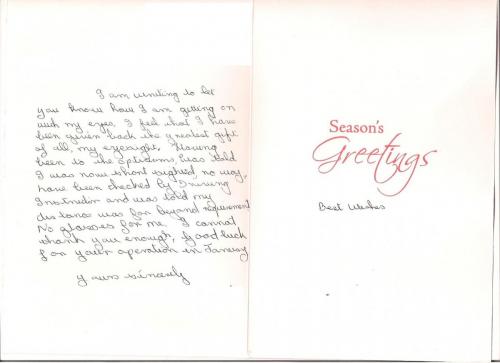 I am writing to let
you know how I am getting on
with my eyes. I feel that I have
been given back the greatest gift
of all, my eyesight. Having
been to the opticians, was told
I was now short sighted, no way,
have been checked by Driving
Instructor and was told my
distance was far beyond requirement
No glasses for me. I cannot
thank you enough, Good luck
for your operation in January
Yours sincerely
Season's
Greetings
Best Wishes